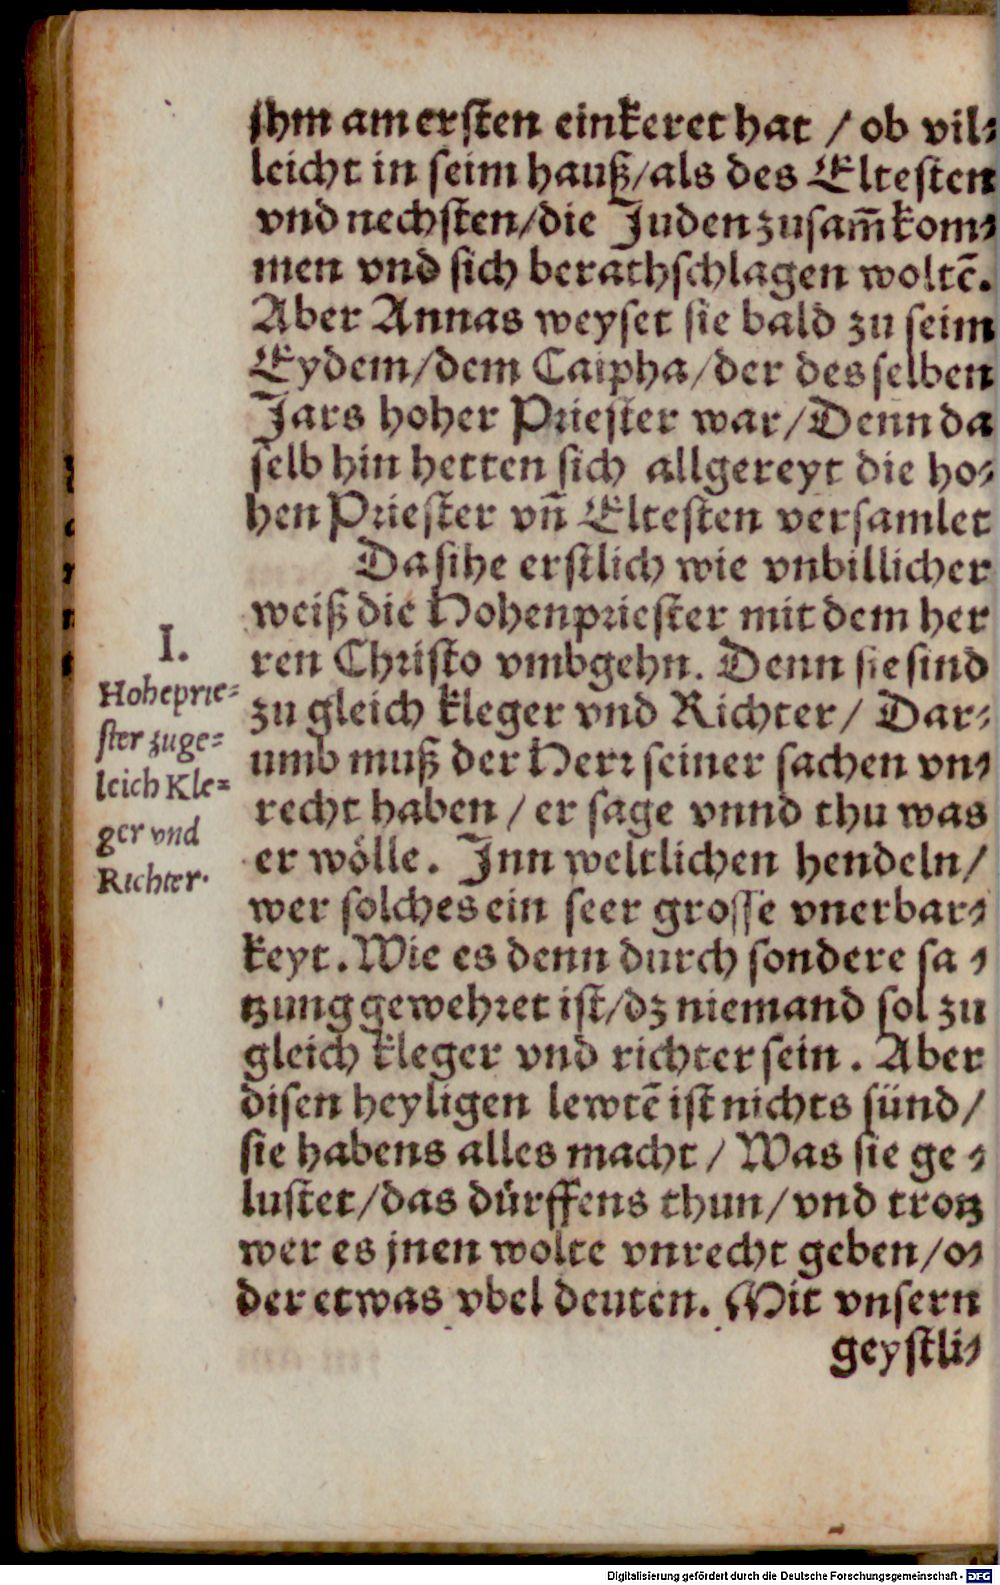 jhm am ersten einkeret hat / ob vil⸗
leicht in seim hauß/als des Eltesten
vnd nechsten/die Juden zusam̃kom⸗
men vnd sich berathschlagen woltẽ.
Aber Annas weyset sie bald zu seim
Eydem/dem Caipha/der desselben
Jars hoher Priester war/Denn da
selb hin hetten sich allgereyt die ho⸗
hen Priester vñ Eltesten versamlet
Da sihe erstlich wie vnbillicher
weiß die Hohenpriester mit dem her
ren Christo vmbgehn. Denn sie sind
zu gleich kleger vnd Richter/ Dar⸗
umb muß der Herr seiner sachen vn⸗
recht haben / er sage vnnd thu was
er wölle. Inn weltlichen hendeln/
wer solches ein seer grosse vnerbar⸗
keyt. Wie es denn durch sondere sa⸗
tzung gewehret ist/dz niemand sol zu
gleich kleger vnd richter sein. Aber
disen heyligen lewtẽ ist nichts sünd/
sie habens alles macht / Was sie ge⸗
lustet/das dürffens thun/vnd trotz
wer es jnen wolte vnrecht geben/o⸗
der etwas vbel deuten. Mit vnsern
geystli⸗
I.
Hoheprie⸗
ster zuge⸗
leich Kle⸗
ger vnd
Richter.
Digitalisierung gefördert durch die Deutsche Forschungsgemeinschaft - DFG